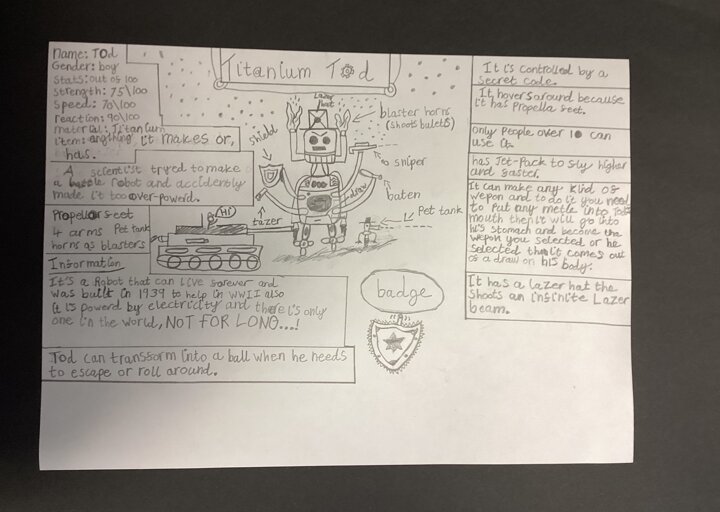 Titanium Tod
Name: TOd
Gender: boy
Stats: out of 100
strength: 75\100
speed: 70\100
reaction: 90\100
material: Titanium
item: anything it makes or,
has.
A scientist tryed to make
a battle robot and accidently
made it too over-powerd.
Propellor feet
4 arms Pet tank
horns as blasters
Information
It's a Robot that can live forever and
was built in 1939 to help in WWII also
it is powerd by electricity and there is only
one in the world, NOT FOR LONG...!
Tod can transform into a ball when he needs
to escape or roll around.
Lazer
hat
blaster horns
(shoots bulets)
shield
sniper
draw
baten
tazer
Pet tank
Hi
badge
It is controlled by a
secret code.
It hovers around because
it has propella feet.
Only people over 10 can
use it.
has Jet-Pack to fly higher
and faster.
It can make any kind of
wepon and to do it you need
to put any metle into Tods
mouth then it will go into
his stomach and become the
wepon you selected or he
selected then it comes out
of a draw on his body.
It has a lazer hat the
shoots an infinite Lazer
beam.